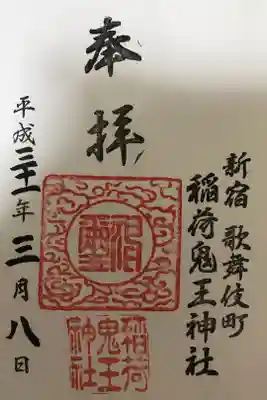 新宿歌舞伎町
稲荷鬼王神社
奉拝
稲荷
鬼王
神社
平成三十一年三月八日